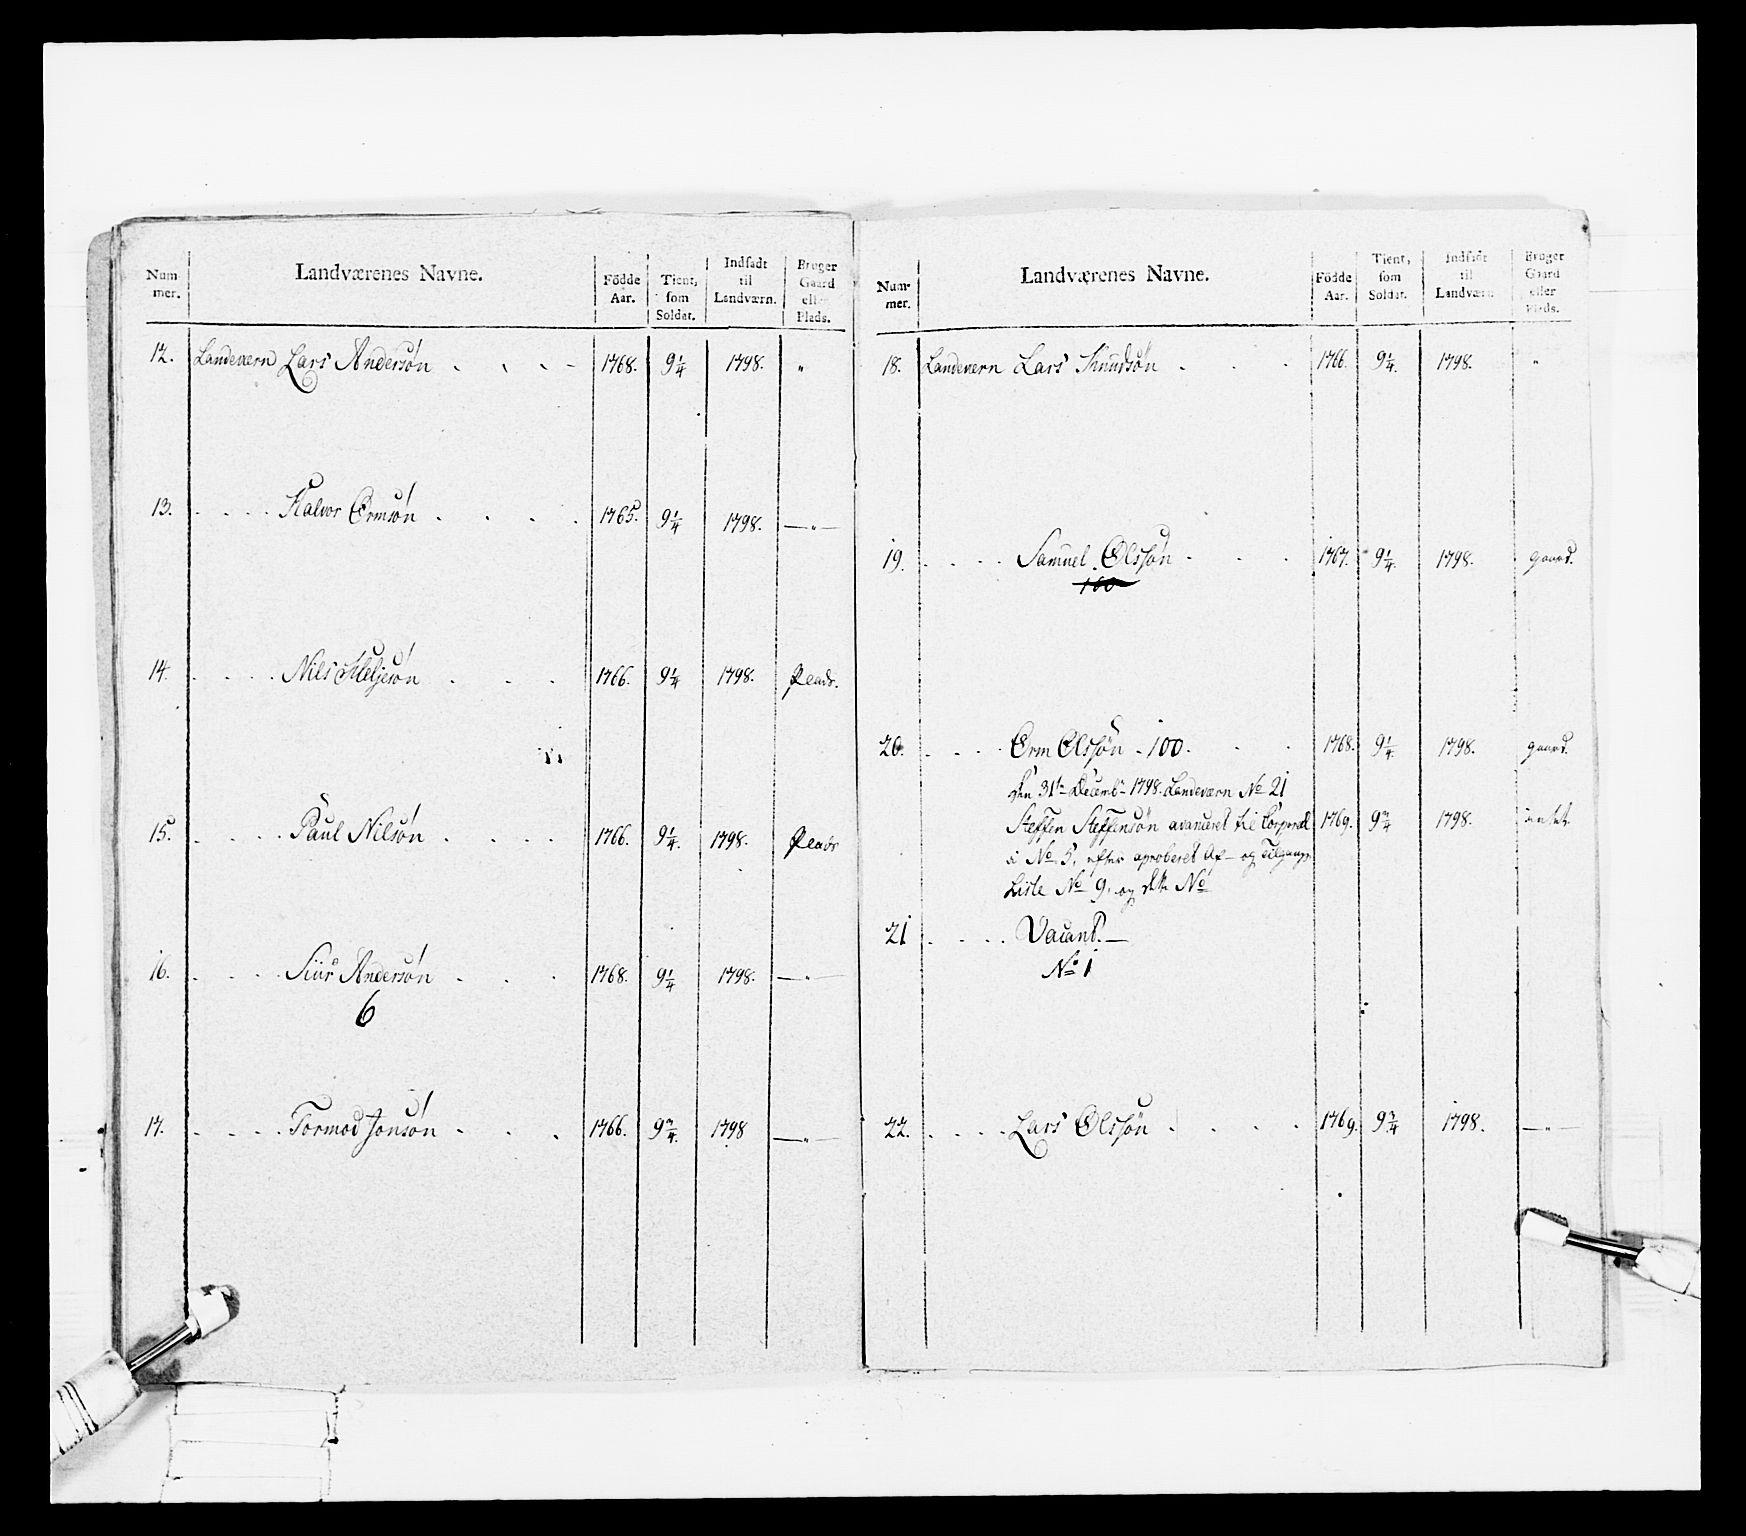 Num- mer. Landværenes Navne. Födde Aar. Tient, som Soldat. Indsadt til Landværn. Bruger Gaard eller Plads.
12. Landevern Lars Andersøn 1768. 9 1/4 1798. "
13. Halvor Ermsøn 1765. 9 1/4 1798. — " —
14. Nils Heljesøn 1766. 9 1/4 1798. Plads.
15. Paul Nilsøn 1766. 9 1/4. 1798. Plads
16. Siur Andersøn 1768. 9 1/4 1798. — " —
6
17. Tormod Jonsøn 1766. 9 3/4. 1798 — " —
Num- mer. Landværenes Navne. Födde Aar. Tient, som Soldat. Indsadt til Landværn. Bruger Gaard eller Plads.
18. Landevern Lars Knudsøn 1766. 9 1/4. 1798. "
19. Samuel Olssøn 1767. 9 1/4. 1798. gaard.
100
20. Erm Olssøn - 100. 1768. 9 1/4. 1798. gaard.
Den 31te Decembr 1798. Landeværn No 21
Steffen Steffensøn avanceret til Corporal 1769. 9 3/4 1798. intet
i No 5, efter aproberet Af- og Tilgangs
Liste No 9, og dette No
21 Vacant. —
No 1
22. Lars Olssøn 1769. 9 3/4 1798. — " —